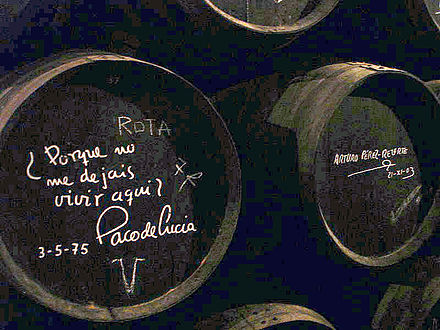 ROTA
¿Porque no
me dejais
vivir aqui?
Paco de Lucia
3-5-75
ARTURO PÉREZ-REVERTE
21-XI-03